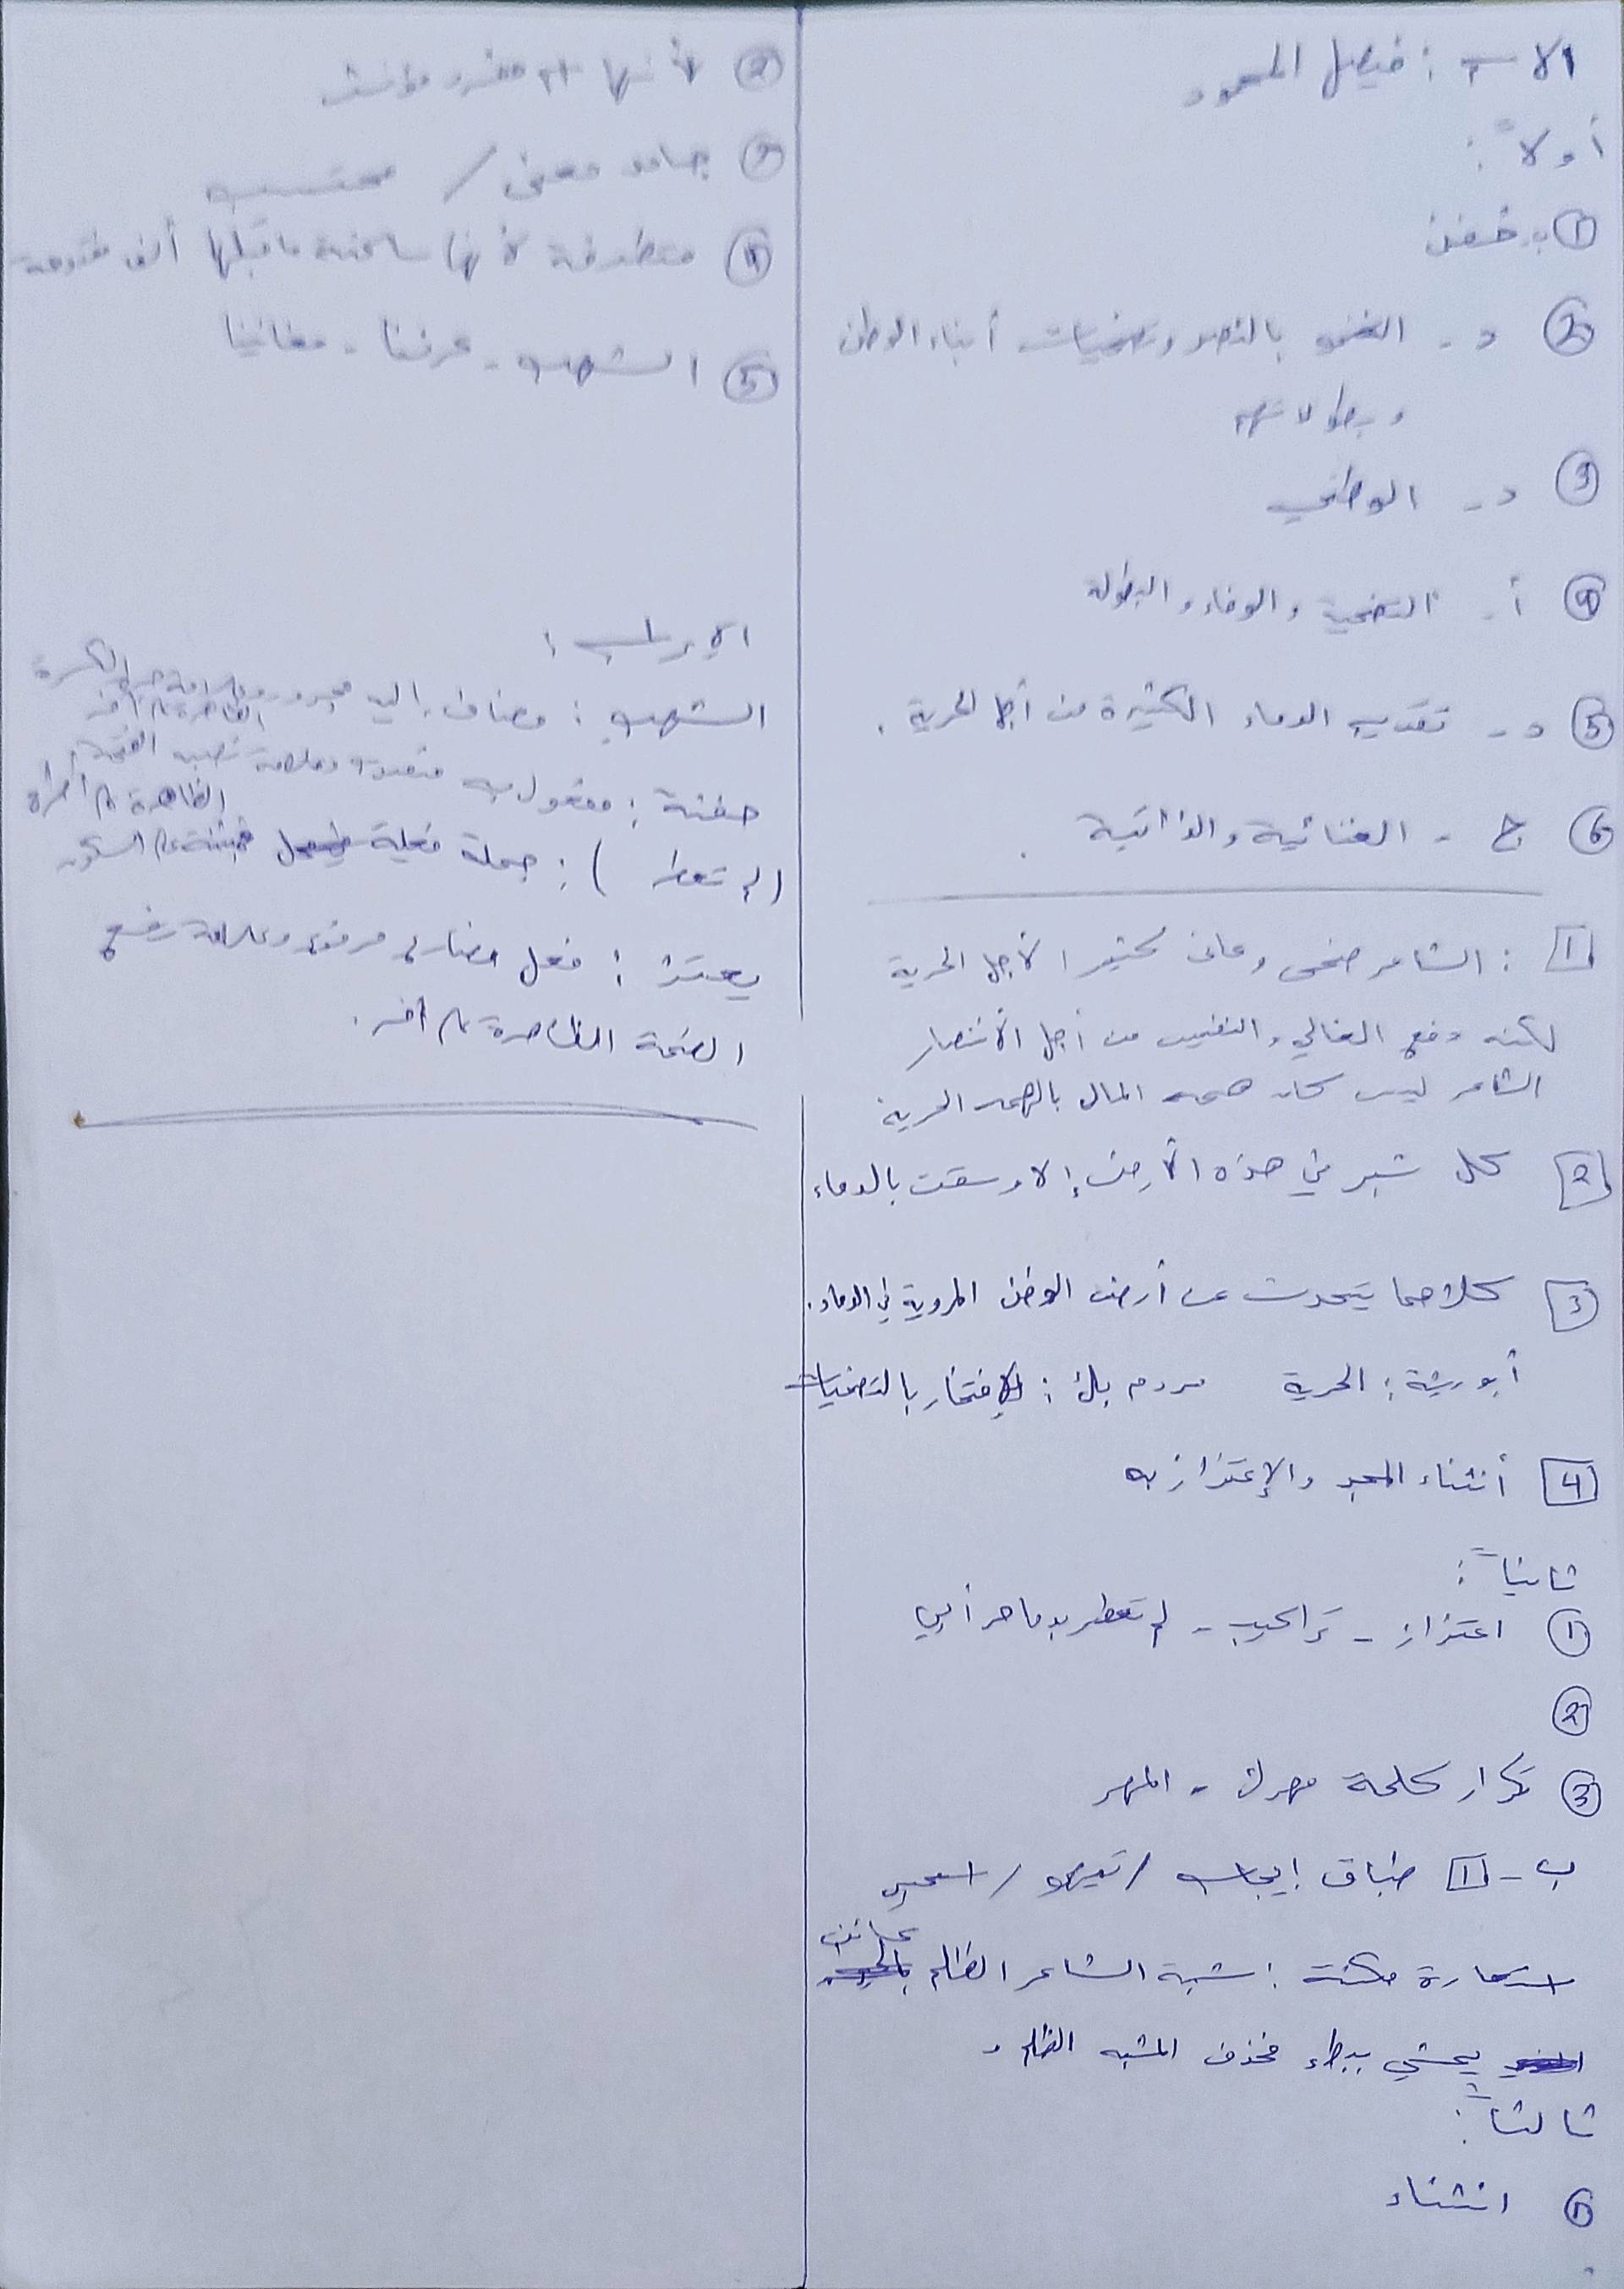 الاسم : فيصل المحمود
أولاً :
① ب. خفض
② د - الفخر بالنصر وتضحيات أبناء الوطن
وبطولاتهم
③ د - الوطني
④ أ - التضحية والوفاء والبطولة
⑤ د - تقديم الدماء الكثيرة من أجل الحرية .
⑥ ج - الغنائية والذاتية .
1 : الشاعر ضحى وعانى كثيرا لأجل الحرية
لكنه دفع الغالي والنفيس من أجل الأنتصار
الشاعر ليس كان همه المال بالهمه الحرية
2 كل شبر في هذه الأرض إلا وسقت بالدماء
3 كلاهما يتحدث عن أرض الوطن المروية في الدماء .
أبو ريشة : الحرية مردم بك : الإفتخار بالتضحيات
4 أنشاء المجد والإعتزاز به
ثانياً :
① اعتزاز - تراكيب - لم تعطر بدما حر أبي
②
③ تكرار كلمة مهرك - المهر
ب - 1 طباق إيجاب / تيهو / اسحبي
استعارة مكنية : شبه الشاعر الظلم بكائن
يمشي ببطء فحذف المشبه الظلم و
ثالثاً :
① انشاء
② لأنها اسم مفرد مؤنث
③ جامد معنى /
④ متطرفة لأنها ساكنة ما قبلها ألف مفتوحة
⑤ الشهب - عرفنا - مغانينا
الإعراب :
الشهب : مضاف إليه مجرور وعلامة جره الكسرة
الظاهرة على آخره
حفنة : مفعول به منصوب وعلامة نصبه الفتحة
الظاهرة على آخره
(لم تعطر) : جملة فعلية مبنية على السكون
يعتز : فعل مضارع مرفوع وعلامة رفعه
الضمة الظاهرة على آخره .